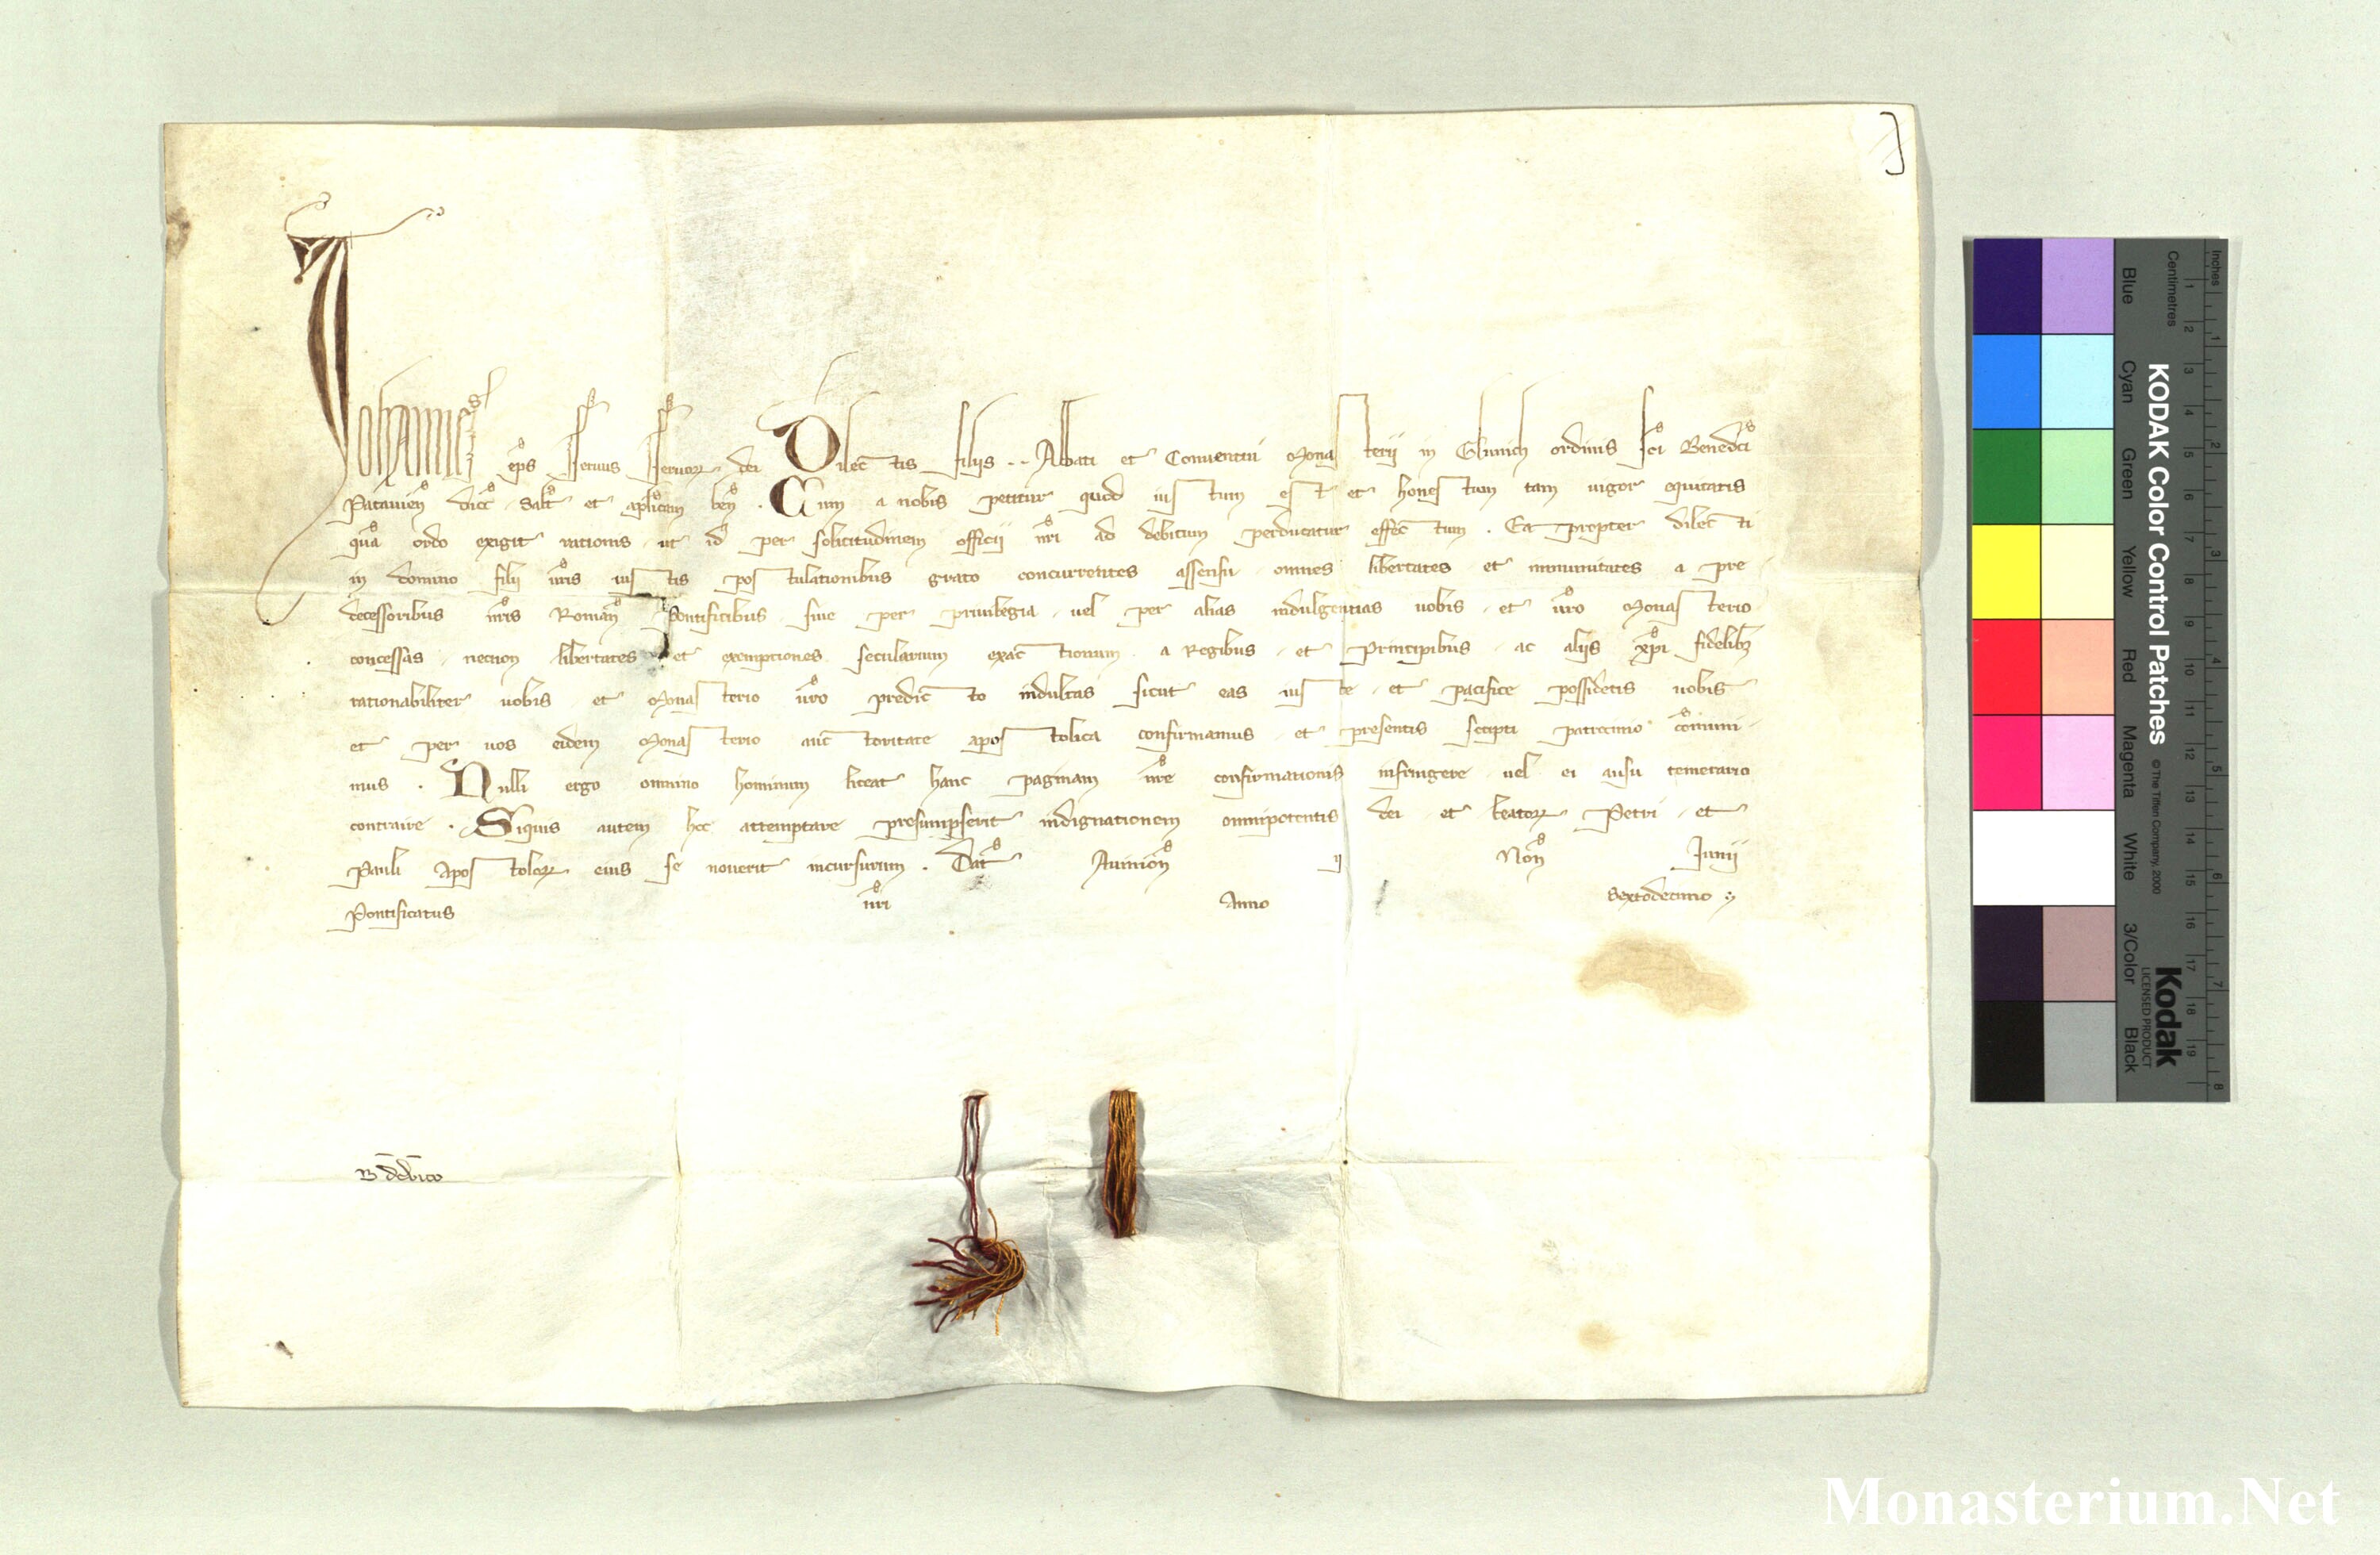 Johannes ep̄s seruus seruoꝝ dei Dilectis filijs .. Abbati et Conuentui Monasterij in Glunich ordinis sc̄i Benedc̄i
Patauien̄ dioc̄ . Salt̄ et apl̄icam ben̄ . Cum a nobis petitur quod iustum est et honestum tam uigor equitatis
quā ordo exigit rationis ut id per solicitudinem officij nr̄i ad debitum perducatur effectum . Ea propter dilecti
in domino filij ur̄is iustis postulationibus grato concurrentes assensu omnes libertates et immunitates a pre
decessoribus nr̄is Roman̄ Pontificibus siue per priuilegia . uel per alias indulgentias uobis . et ur̄o Monasterio
concessas . necnon libertates et exemptiones secularium exactionum a Regibus . et Principibus . ac alijs xp̄i fidelibꝫ
rationabiliter uobis . et Monasterio ur̄o predicto indultas sicut eas iuste . et pacifice possidetis uobis
et per uos eidem Monasterio auctoritate apostolica confirmamus . et presentis scripti patrocinio cōmuni
mus . Nulli ergo omnino hominum liceat hanc paginam nr̄e confirmationis infringere uel ei ausu temerario
contraire . Siquis autem hoc attemptare presumpserit indignationem omnipotentis dei . et beatoꝝ Petri . et
Pauli Apostoloꝝ eius se nouerit incursurum . Dat̄ Auinion̄ ij Non̄ Junij
Pontificatus nr̄i Anno Sextodecimo
KODAK Color Control Patches © The Tiffen Company, 2000
Kodak
LICENSED PRODUCT
Blue Cyan Green Yellow Red Magenta White 3/Color Black
Inches 1 2 3 4 5 6 7 8
Centimetres 1 2 3 4 5 6 7 8 9 10 11 12 13 14 15 16 17 18 19
Monasterium.Net